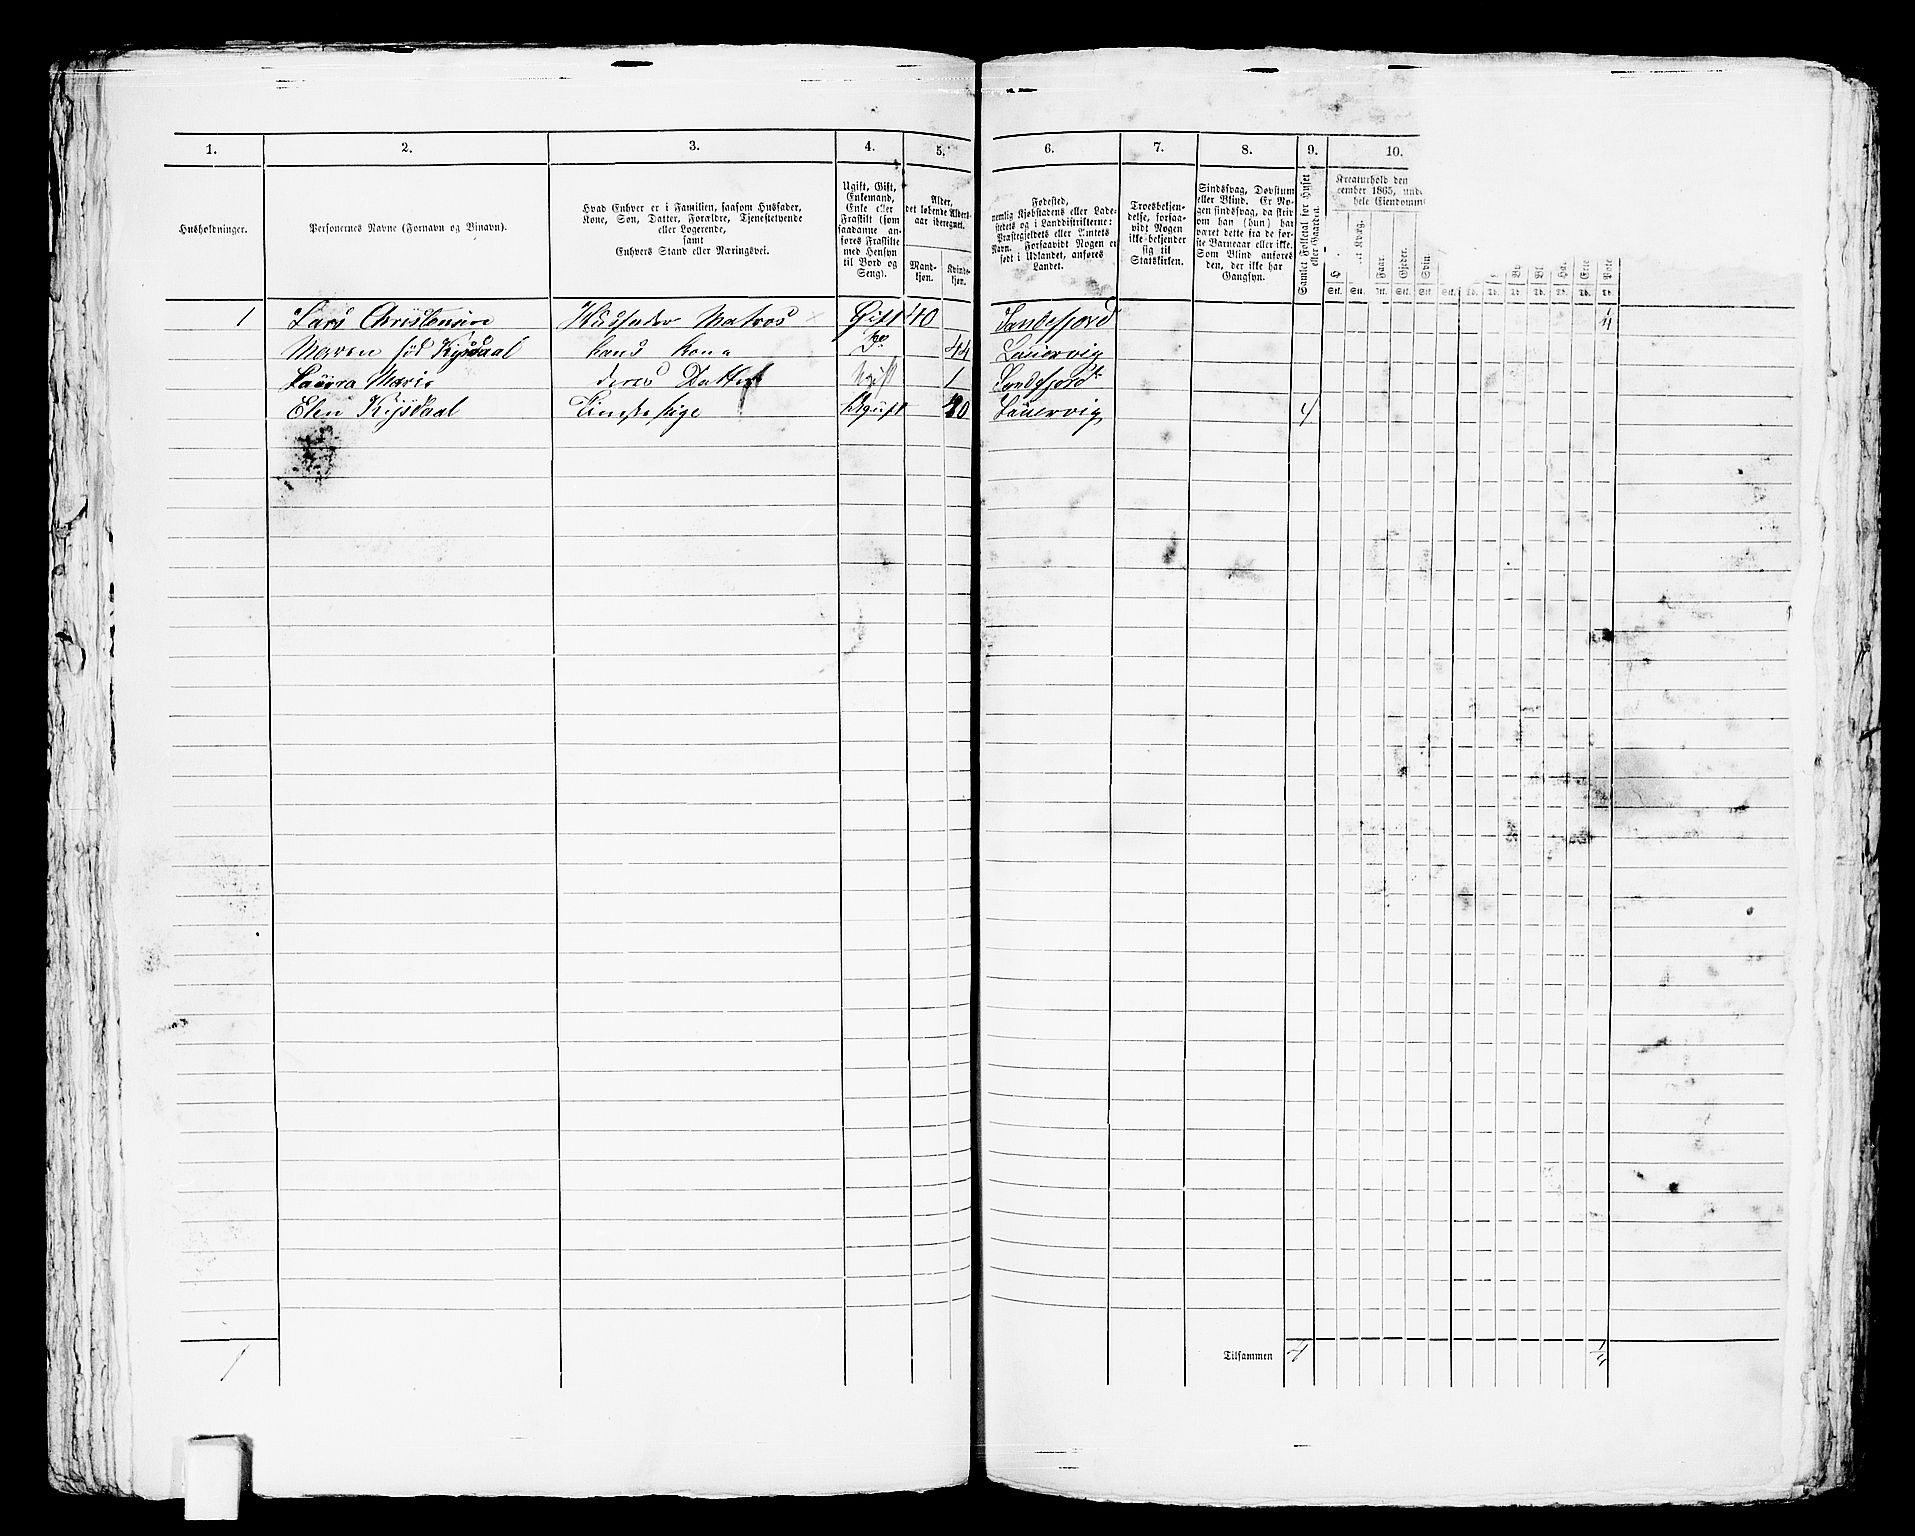 1. 2. 3. 4. 5. 6. 7. 8. 9. 10.
Husholdninger.
Personernes Navne (Fornavn og Binavn).
Hvad Enhver er i Familien, saasom Husfader,
Kone, Søn, Datter, Forældre, Tjenestetyende
eller Logerende,
samt
Enhvers Stand eller Næringsvei.
Ugift, Gift,
Enkemand,
Enke eller
Fraskilt (som
saadanne an-
føres Fraskilte
med Hensyn
til Bord og
Seng).
Alder,
det løbende Alders-
aar iberegnet.
Mand-
kjøn.
Kvinde-
kjøn.
Fødested,
nemlig Kjøbstadens eller Lade-
stedets og i Landdistrikterne:
Præstegjeldets eller Amtets
Navn. Forsaavidt Nogen er
født i Udlandet, anføres
Landet.
Troesbekjen-
delse, forsaa-
vidt Nogen
ikke bekjender
sig til
Statskirken.
Sindssvag, Døvstum
eller Blind. Er No-
gen sindssvag, da skriv
om han (hun) har
været dette fra de før-
ste Barneaar eller ikke.
Som Blind anføres
den, der ikke har
Gangsyn.
Samlet Folketal for Huset
eller Gaarden.
Kreaturhold den
cember 1865,
hele Eiendomm
Kvæg.
Faar.
Gjeder.
Svin.
Stk. Stk. Stk. Stk. Stk. Td. Td. Td. Td. Td. Td. Td.
1 Lars Christensen Husfader Matros × Gift 40 Sandefjord 1/4
Maren fød Kysdaal hans Kone Do 44 Laurvig
Laura Marie deres Datter Ugift 1 Sandefjord
Elen Kysdaal Ugift Laurvig 4
1 Tilsammen 4 1/4